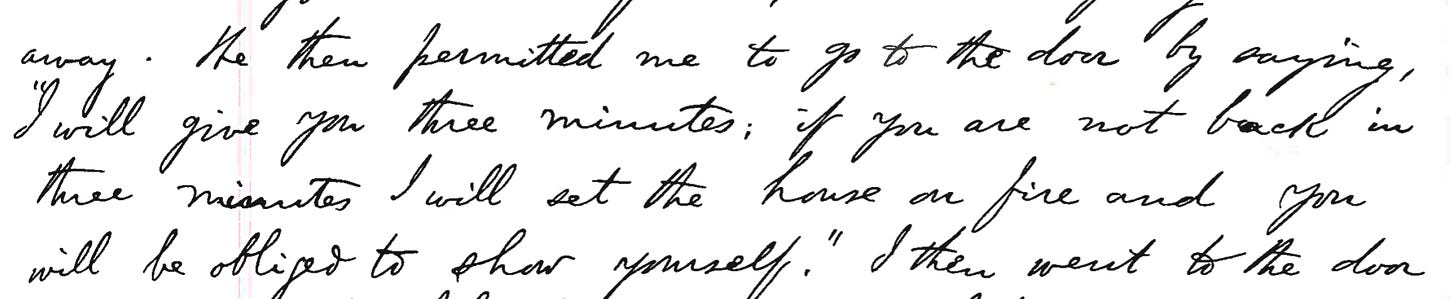 away. He then permitted me to go to the door by saying,
"I will give you three minutes; if you are not back in
three minutes I will set the house on fire and you
will be obliged to show yourself." I then went to the door